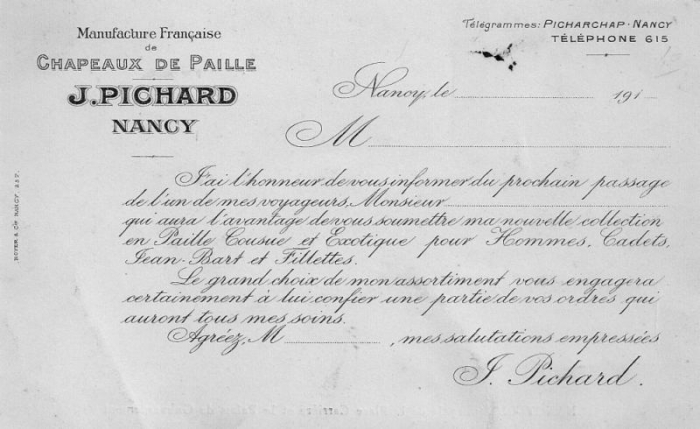 Manufacture Française
de
CHAPEAUX DE PAILLE
J. PICHARD
NANCY
Télégrammes: PICHARCHAP · NANCY
TÉLÉPHONE 615
Nancy, le 191
M
J'ai l'honneur de vous informer du prochain passage
de l'un de mes voyageurs, Monsieur
qui aura l'avantage de vous soumettre ma nouvelle collection
en Paille Cousue et Exotique pour Hommes, Cadets,
Jean-Bart et Fillettes.
Le grand choix de mon assortiment vous engagera
certainement à lui confier une partie de vos ordres qui
auront tous mes soins.
Agréez, M , mes salutations empressées
J. Pichard.
ROYER & Cie NANCY